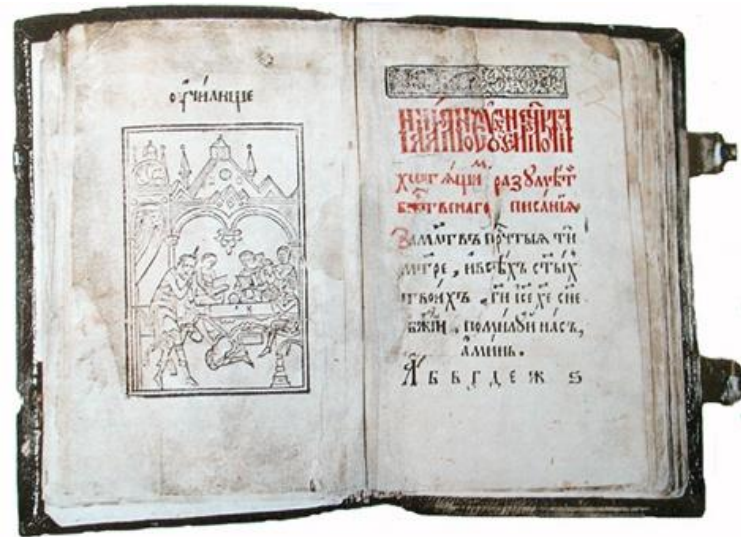 ѹчи́лище
хотѧ́щиⷨ разꙋмѣ́ти
бж҃твенаго писа́нїѧ
За мл҃твъ прⷱ҇тыѧ ти
мт҃ре, и всѣ́хъ ст҃ы́хъ
твои́хъ, гд҃и і҆се хе сн҃е
бж҃їи, поми́лꙋй на́съ,
а҆ми́нь.
А Б В Г Д Е Ж Ѕ